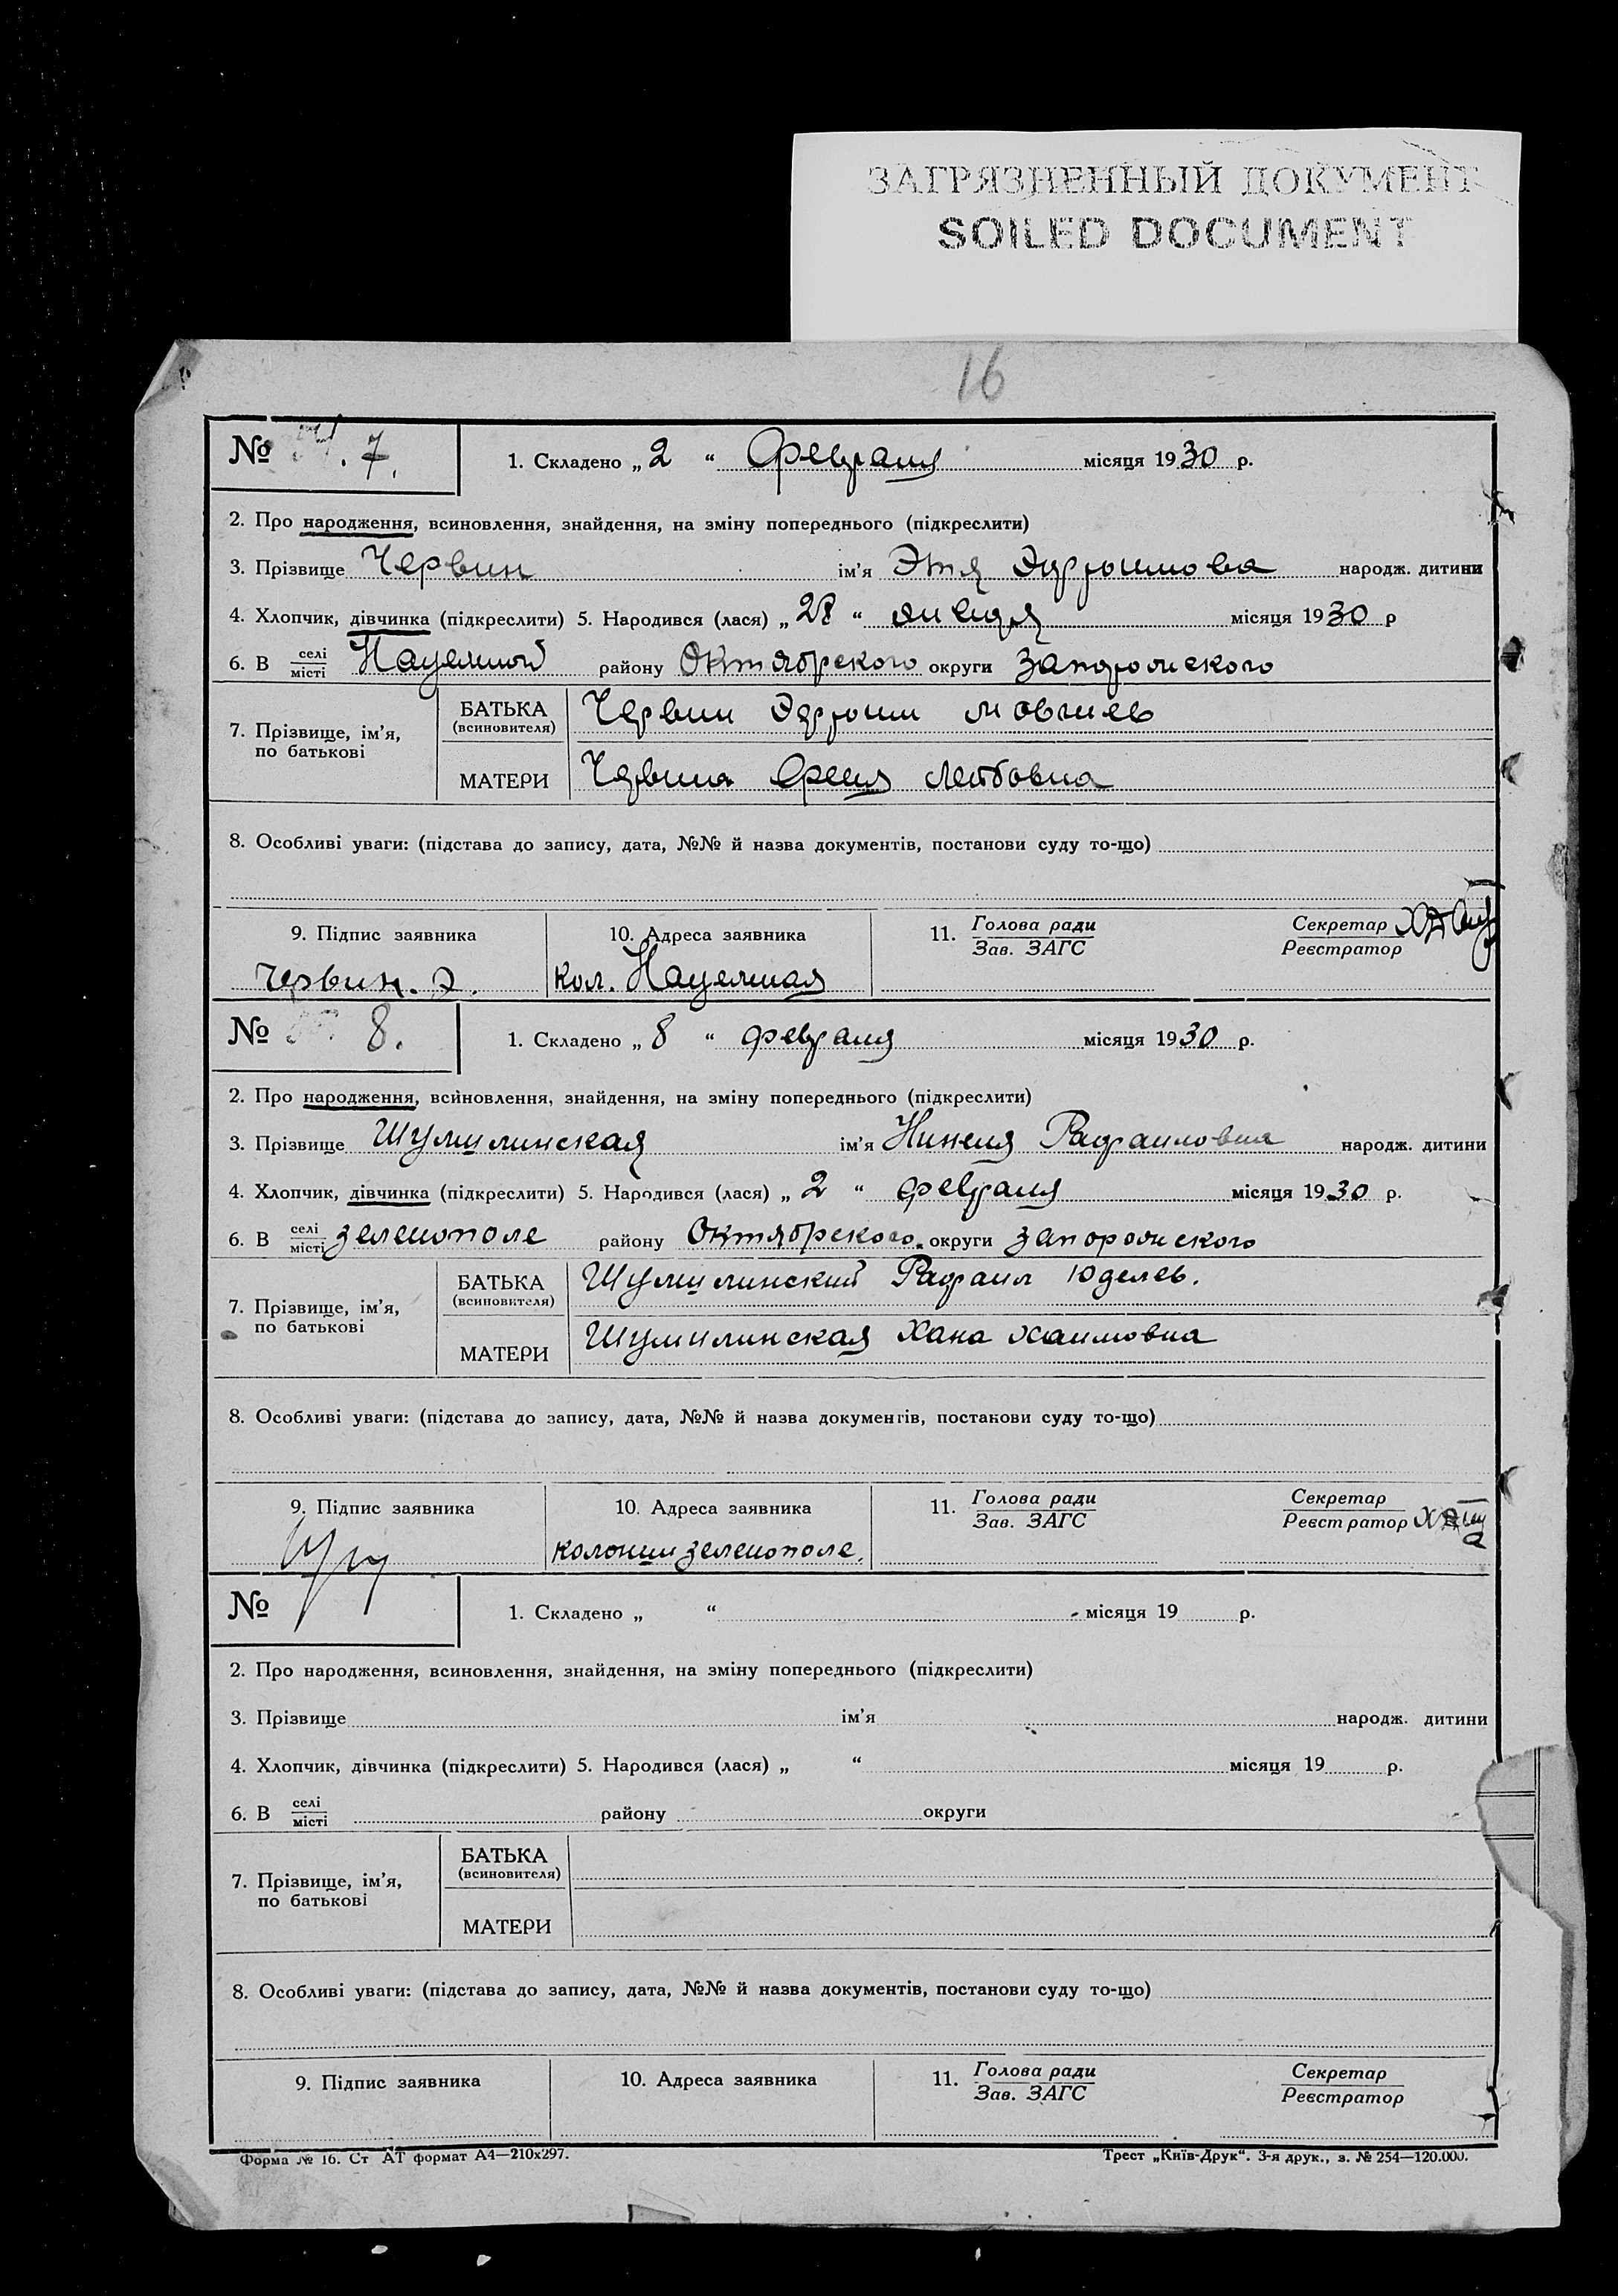 ЗАГРЯЗНЕННЫЙ ДОКУМЕНТ
SOILED DOCUMENT
16
№ 7.
1. Складено „2“ Февраля місяця 1930 р.
2. Про народження, всиновлення, знайдення, на зміну попереднього (підкреслити)
3. Прізвище Червин ім'я Этя народж. дитини
4. Хлопчик, дівчинка (підкреслити) 5. Народився (лася) „28“ января місяця 1930 р
6. В селі місті району Октябрского округи Запорожского
7. Прізвище, ім'я, по батькові
БАТЬКА (всиновителя) Червин
МАТЕРИ Червина Лейбовна
8. Особливі уваги: (підстава до запису, дата, №№ й назва документів, постанови суду то-що)
9. Підпис заявника
10. Адреса заявника
11. Голова ради Зав. ЗАГС
Секретар Реєстратор
Червин. Э.
кол.
№ 8.
1. Складено „8“ февраля місяця 1930 р.
2. Про народження, всиновлення, знайдення, на зміну попереднього (підкреслити)
3. Прізвище Шумилинская ім'я Нинеля народж. дитини
4. Хлопчик, дівчинка (підкреслити) 5. Народився (лася) „2“ февраля місяця 1930 р.
6. В селі місті зеленополе району Октябрского округи запорожского
7. Прізвище, ім'я, по батькові
БАТЬКА (всиновителя) Шумилинский Рафаил Юделев.
МАТЕРИ Шумилинская Хана Хаимовна
8. Особливі уваги: (підстава до запису, дата, №№ й назва документів, постанови суду то-що)
9. Підпис заявника
10. Адреса заявника
11. Голова ради Зав. ЗАГС
Секретар Реєстратор
колонии зеленополе.
№
1. Складено „ “ місяця 19 р.
2. Про народження, всиновлення, знайдення, на зміну попереднього (підкреслити)
3. Прізвище ім'я народж. дитини
4. Хлопчик, дівчинка (підкреслити) 5. Народився (лася) „ “ місяця 19 р.
6. В селі місті району округи
7. Прізвище, ім'я, по батькові
БАТЬКА (всиновителя)
МАТЕРИ
8. Особливі уваги: (підстава до запису, дата, №№ й назва документів, постанови суду то-що)
9. Підпис заявника
10. Адреса заявника
11. Голова ради Зав. ЗАГС
Секретар Реєстратор
Форма № 16. Ст АТ формат А4—210х297.
Трест „Київ-Друк“. 3-я друк., з. № 254—120.000.